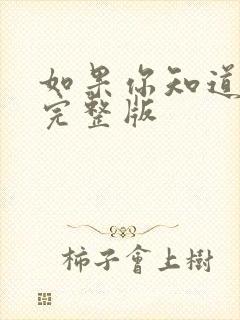 如果你知道
完整版
柿子會上樹